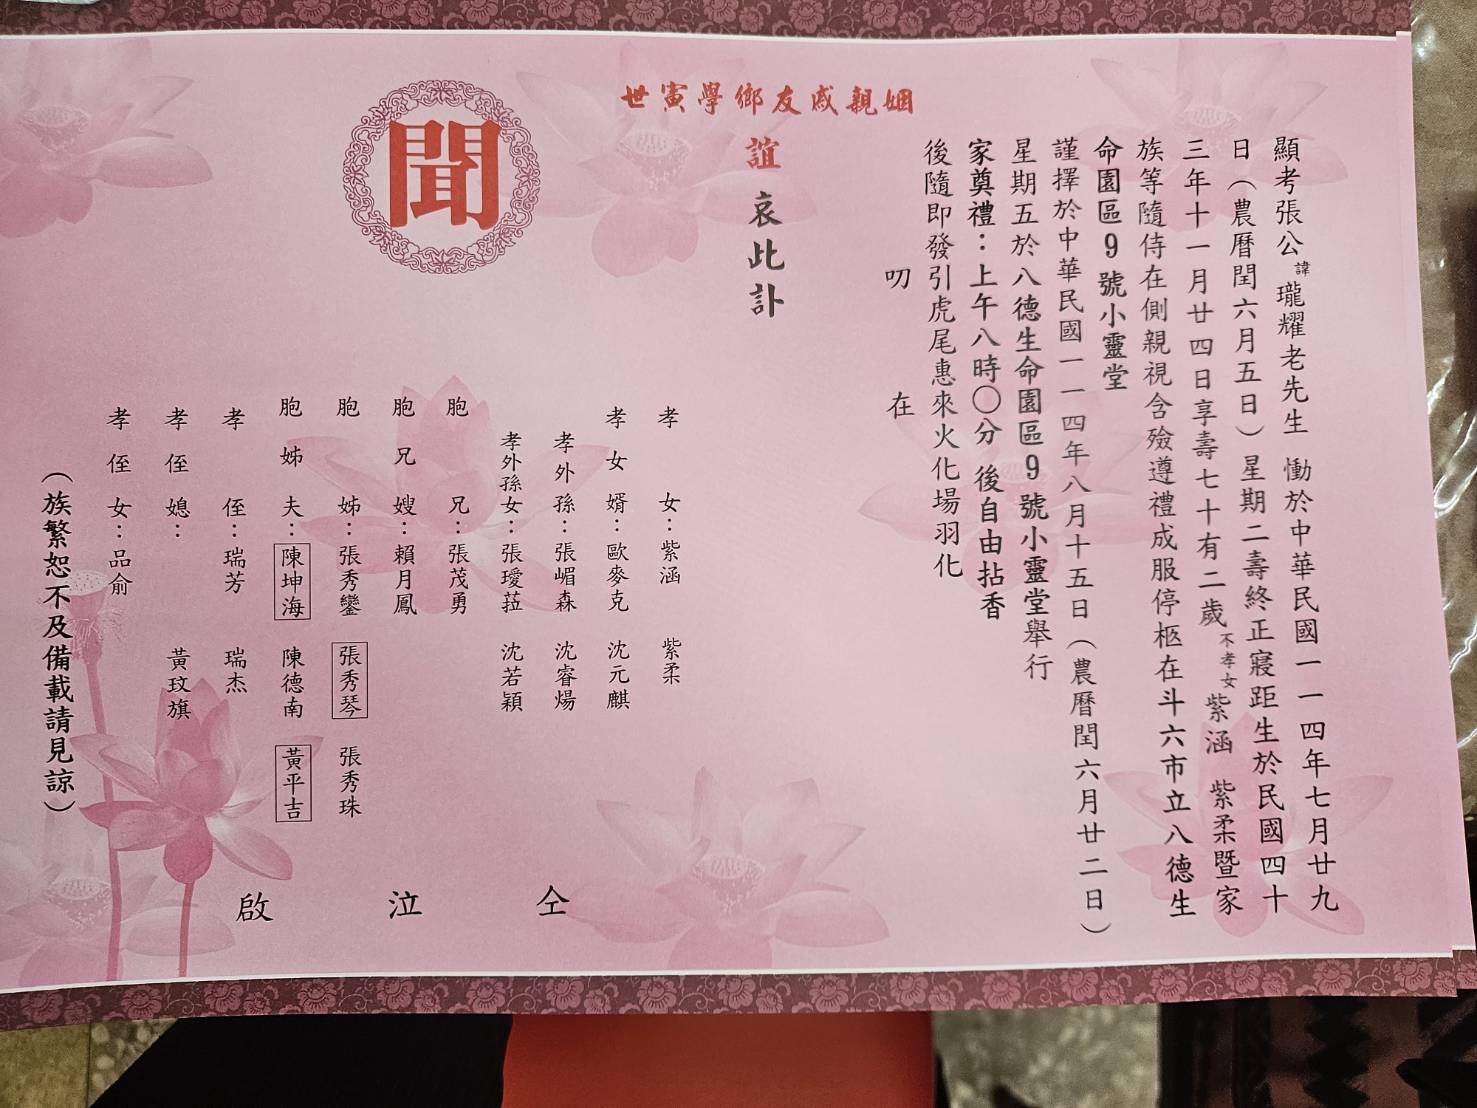 顯考張公諱瓏耀老先生 慟於中華民國一一四年七月廿九
日（農曆閏六月五日）星期二壽終正寢距生於民國四十
三年十一月廿四日享壽七十有二歲不孝女紫涵 紫柔暨家
族等隨侍在側親視含殮遵禮成服停柩在斗六市立八德生
命園區9號小靈堂
謹擇於中華民國一一四年八月十五日（農曆閏六月廿二日）
星期五於八德生命園區9號小靈堂舉行
家奠禮：上午八時〇分 後自由拈香
後隨即發引虎尾惠來火化場羽化
叨 在
姻親戚友鄉學寅世
誼 哀此訃
聞
孝 女：紫涵 紫柔
孝女婿：歐麥克 沈元麒
孝外孫：張嵋森 沈睿煬
孝外孫女：張璦菈 沈若穎
胞 兄：張茂勇
胞兄嫂：賴月鳳
胞 姊：張秀鑾 張秀琴 張秀珠
胞姊夫：陳坤海 陳德南 黃平吉
孝 侄：瑞芳 瑞杰
孝侄媳： 黃玟旗
孝侄女：品俞
（族繁恕不及備載請見諒）
仝 泣 啟